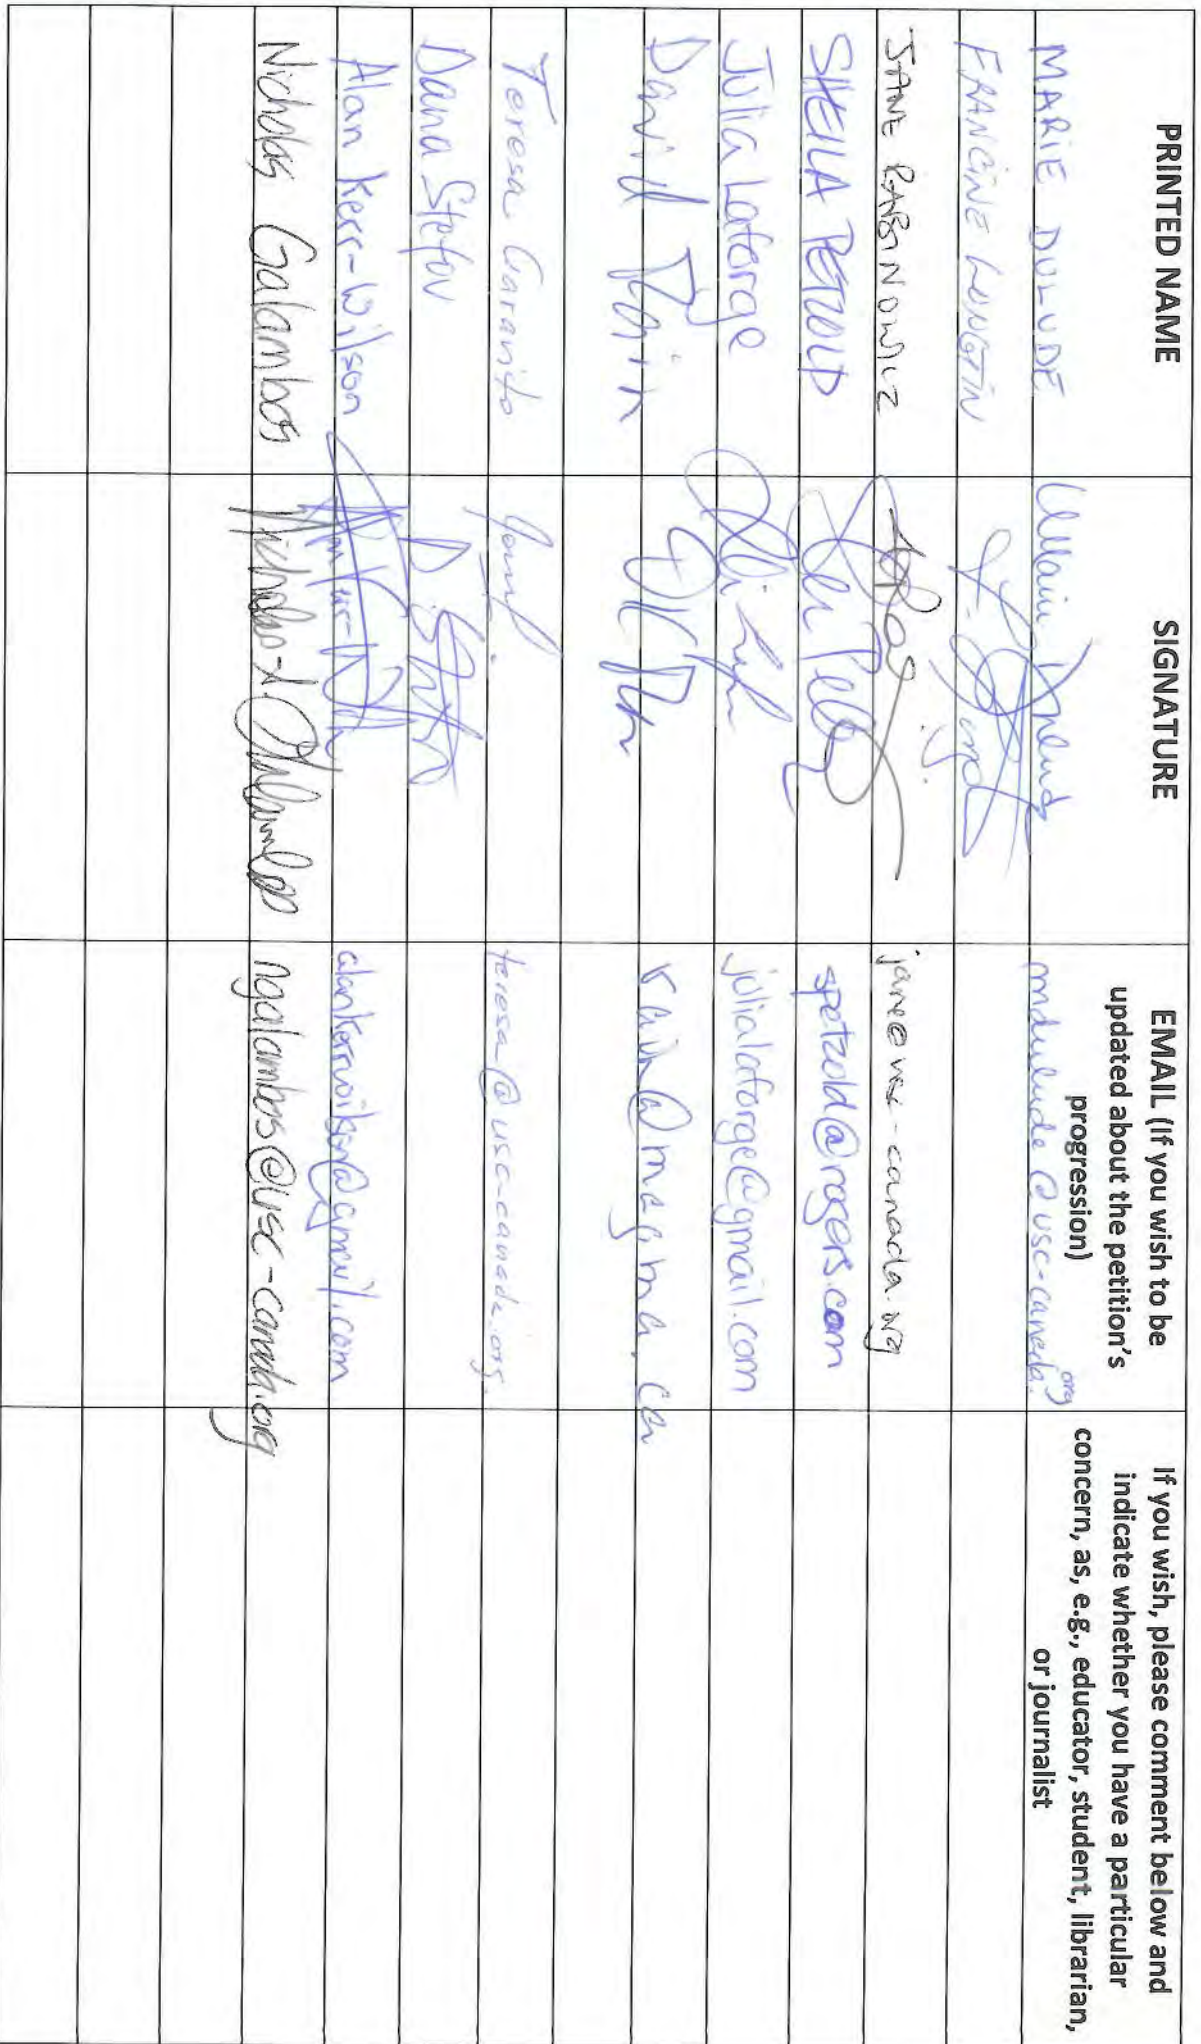 PRINTED NAME
SIGNATURE
EMAIL (If you wish to be
updated about the petition's
progression)
If you wish, please comment below and
indicate whether you have a particular
concern, as, e.g., educator, student, librarian,
or journalist
MARIE DULUDE
mdulude@usc-canada.org
FRANCINE LONGTIN
JANE RABINOWICZ
jane@usc-canada.org
SHEILA PETZOLD
spetzold@rogers.com
Julia Laforge
julialaforge@gmail.com
David Rain
rain@magma.ca
Teresa
teresa@usc-canada.org.
Dana Stefov
D. Stefov
Alan Kerr-Wilson
alankerrwilson@gmail.com
Nicholas Galambos
ngalambos@usc-canada.org